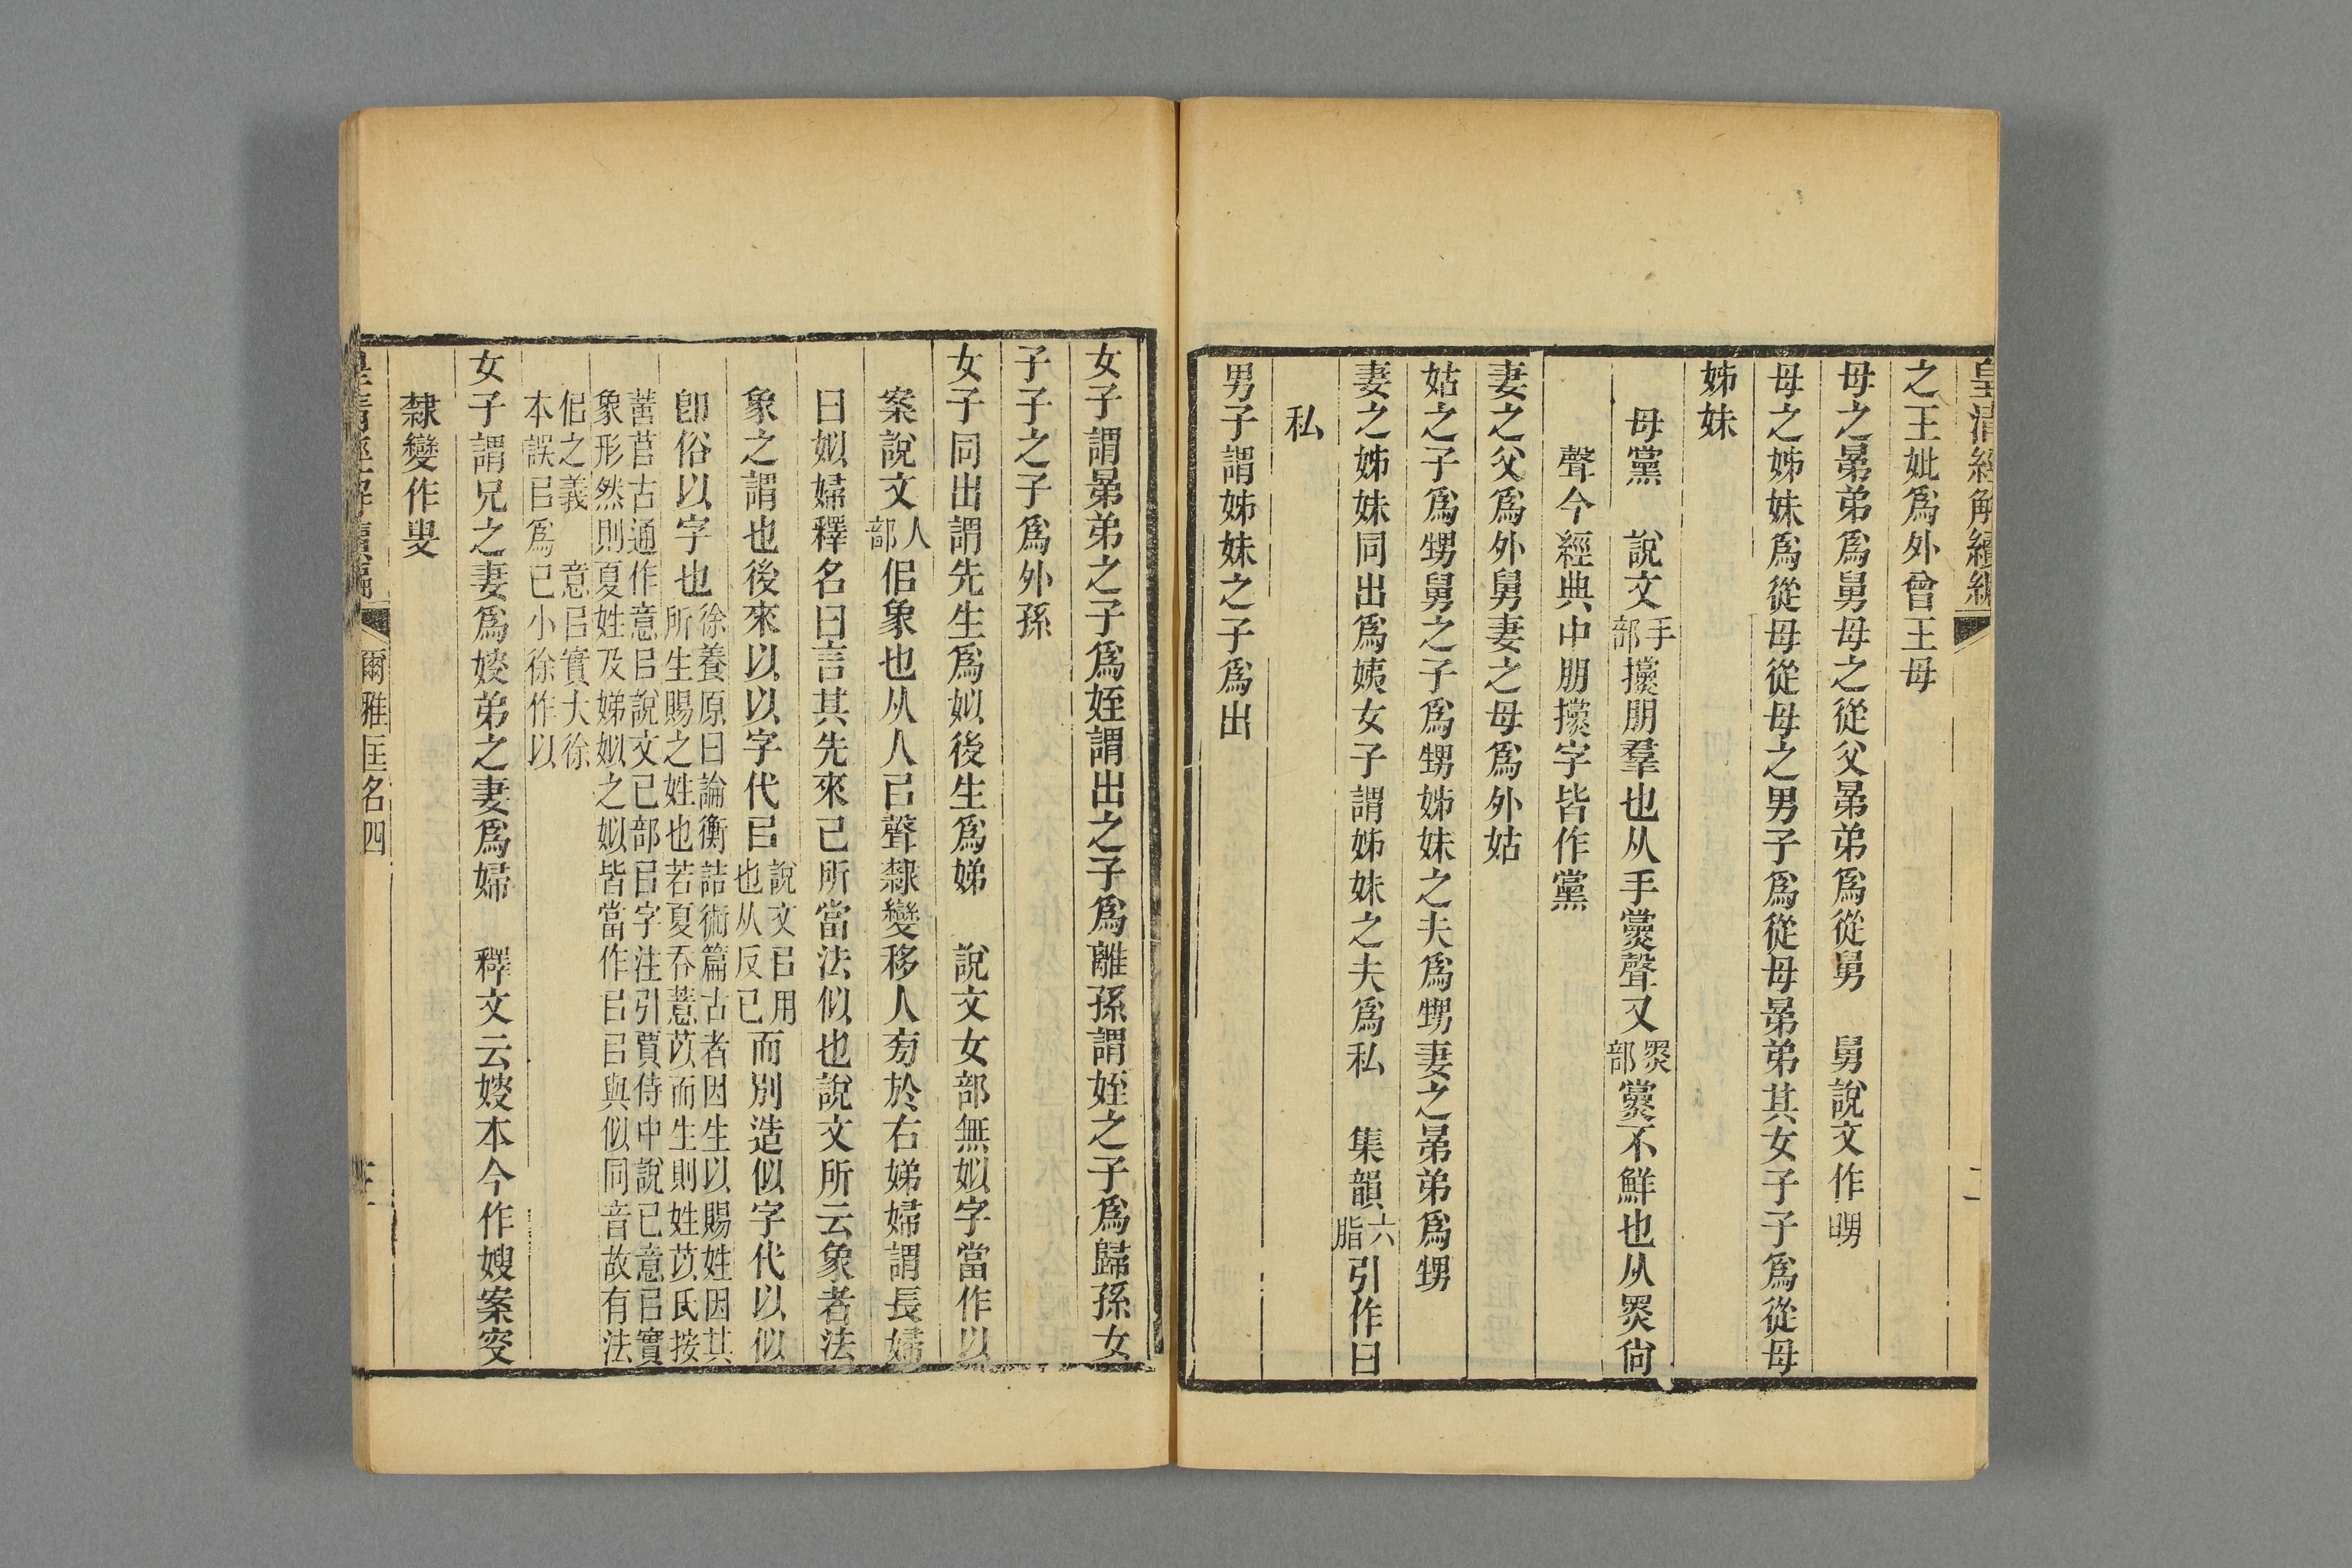 皇清經解續編
之王妣爲外曾王母
母之晜弟爲舅母之從父晜弟爲從舅　舅說文作䑞
母之姊妹爲從母從母之男子爲從母晜弟其女子子爲從母
姊妹
母黨　說文手部攩朋羣也从手黨聲又㷠部黨不鮮也从㷠尙
聲今經典中朋攩字皆作黨
妻之父爲外舅妻之母爲外姑
姑之子爲甥舅之子爲甥姊妹之夫爲甥妻之晜弟爲甥
妻之姊妹同出爲姨女子謂姊妹之夫爲私　集韻六脂引作曰
私
男子謂姊妹之子爲出
女子謂晜弟之子爲姪謂出之子爲離孫謂姪之子爲歸孫女
子子之子爲外孫
女子同出謂先生爲姒後生爲娣　說文女部無姒字當作以
案說文人部佀象也从人㠯聲隸變移人㫄於右娣婦謂長婦
曰姒婦釋名曰言其先來已所當法似也說文所云象者法
象之謂也後來以以字代㠯說文㠯用也从反已而別造似字代以似
卽俗以字也徐養原曰論衡詰術篇古者因生以賜姓因其所生賜之姓也若夏吞薏苡而生則姓苡氏按
䓊苢古通作意㠯說文已部㠯字注引賈侍中說已意㠯實象形然則夏姓及娣姒之姒皆當作㠯㠯與似同音故有法
佀之義　意㠯實大徐本誤㠯爲已小徐作以
女子謂兄之妻爲㛮弟之妻爲婦　釋文云㛮本今作嫂案㛮
隸變作叟
爾雅匡名四